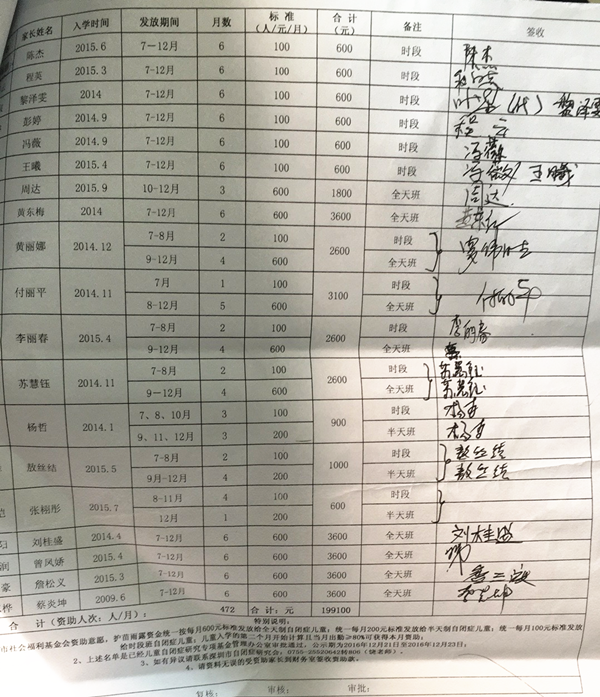 家长姓名 入学时间 发放期间 月数 标准（人/元/月） 合计（元） 备注 签收
陈杰 2015.6 7—12月 6 100 600 时段
程英 2015.3 7-12月 6 100 600 时段
黎泽雯 2014 7-12月 6 100 600 时段 (代) 黎泽雯
彭婷 2014.9 7-12月 6 100 600 时段
冯薇 2014.9 7-12月 6 100 600 时段 冯薇
王曦 2015.4 7-12月 6 100 600 时段 王曦
周达 2015.9 10-12月 3 600 1800 全天班 周达
黄东梅 2014 7-12月 6 600 3600 全天班
黄丽娜 2014.12 7-8月 2 100 2600 时段
9-12月 4 600 全天班
付丽平 2014.11 7月 1 100 3100 时段
8-12月 5 600 全天班
李丽春 2015.4 7-8月 2 100 2600 时段 李丽春
9-12月 4 600 全天班
苏慧钰 2014.11 7-8月 2 100 2600 时段 苏慧钰
9—12月 4 600 全天班 苏慧钰
杨哲 2014.1 7、8、10月 3 100 900 时段 杨哲
9、11、12月 3 200 半天班 杨哲
敖丝结 2015.5 7-8月 2 100 1000 时段 敖丝结
9月-12月 4 200 半天班 敖丝结
张栩彤 2015.7 8-11月 4 100 600 时段
12月 1 200 半天班
刘桂盛 2014.4 7-12月 6 600 3600 全天班 刘桂盛
润 曾凤娇 2015.4 7-12月 6 600 3600 全天班
豪 詹松义 2015.3 7-12月 6 600 3600 全天班
桦 蔡炎坤 2009.6 7-12月 6 600 3600 全天班
合 计（资助人次：人/月）： 472 合计：元 199100
特别说明：
市社会福利基金会资助意愿，护苗雨露资金统一按每月600元标准发放给全天制自闭症儿童；统一每月200元标准发放给半天制自闭症儿童；统一每月100元标准发放
给时段班自闭症儿童；儿童入学的第二个月开始计算且当月出勤≥80%可获得本月资助；
2、上述名单是已经儿童自闭症研究专项基金管理办公室审批通过，公示期为2016年12月21日至2016年12月23日；
3、如有异议请联系深圳市自闭症研究会：0755-25520642转808（饶老师）。
4、请资料无误的受资助家长到财务室签收资助款。
复核： 审核：